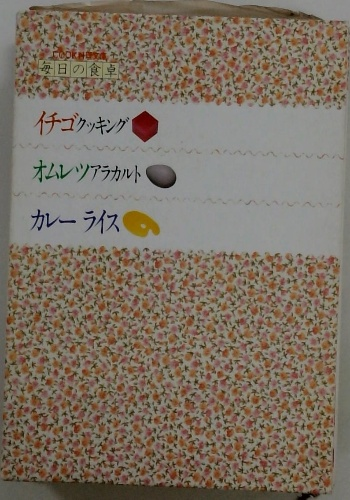 毎日の食卓
イチゴクッキング
オムレツアラカルト
カレーライス